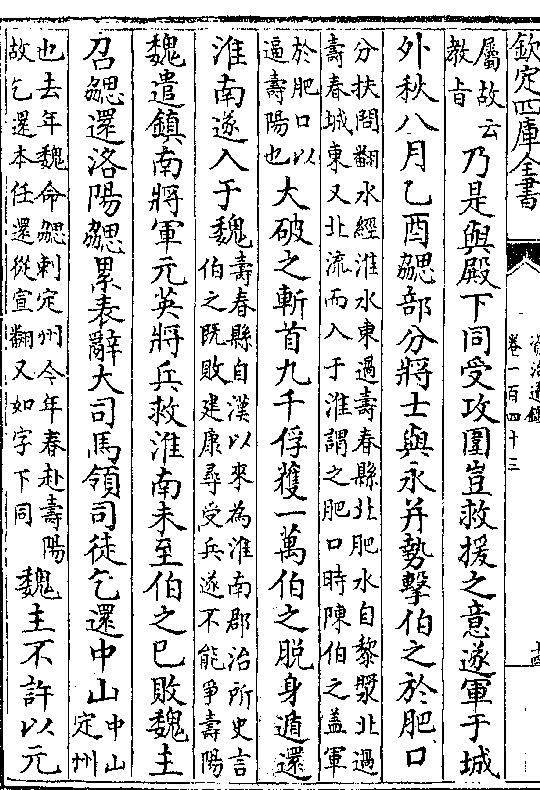 欽定四庫全書
資治通鑑
卷一百四十三
十四
屬故云
教旨
乃是與殿下同受攻圍豈救援之意遂軍于城
外秋八月乙酉勰部分將士與永并勢擊伯之於肥口
分扶問翻水經淮水東過壽春縣北肥水自黎漿北過
壽春城東又北流而入于淮謂之肥口時陳伯之蓋軍
於肥口以
逼壽陽也
大破之斬首九千俘獲一萬伯之脫身遁還
淮南遂入于魏
壽春縣自漢以來為淮南郡治所史言
伯之既敗建康尋受兵遂不能爭壽陽
魏遣鎮南將軍元英將兵救淮南未至伯之已敗魏主
召勰還洛陽勰累表辭大司馬領司徒乞還中山
中山
定州
也去年魏命勰刺定州今年春赴壽陽
故乞還本任還從宣翻又如字下同
魏主不許以元